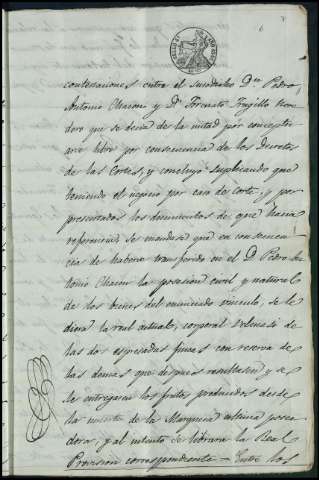 contestaciones entre el suso dicho Dn Pedro
Antonio Chacon y Dn Torcuato Trugillo tene
dero que se decia de la mitad por conceptu
arse libre por consecuencia de los Decretos
de las Cortes, y concluyó suplicando que
teniendo el negocio por caso de corte, y por
presentados los documentos de que hacia
referencia, se mandase que en consecuen
cia de haberse transferido en el D. Pedro An
tonio Chacon la posesion civil y natural
de los bienes del enunciado vinculo, se le
diera la real actual, corporal velcuasi de
las dos espresadas fincas con reserva de
las demas que despues resultasen y se
le entregasen los frutos producidos desde
la muerte de la Marquesa ultima posee
dora, y al intento se librara la Real
Provision correspondiente = Entre los